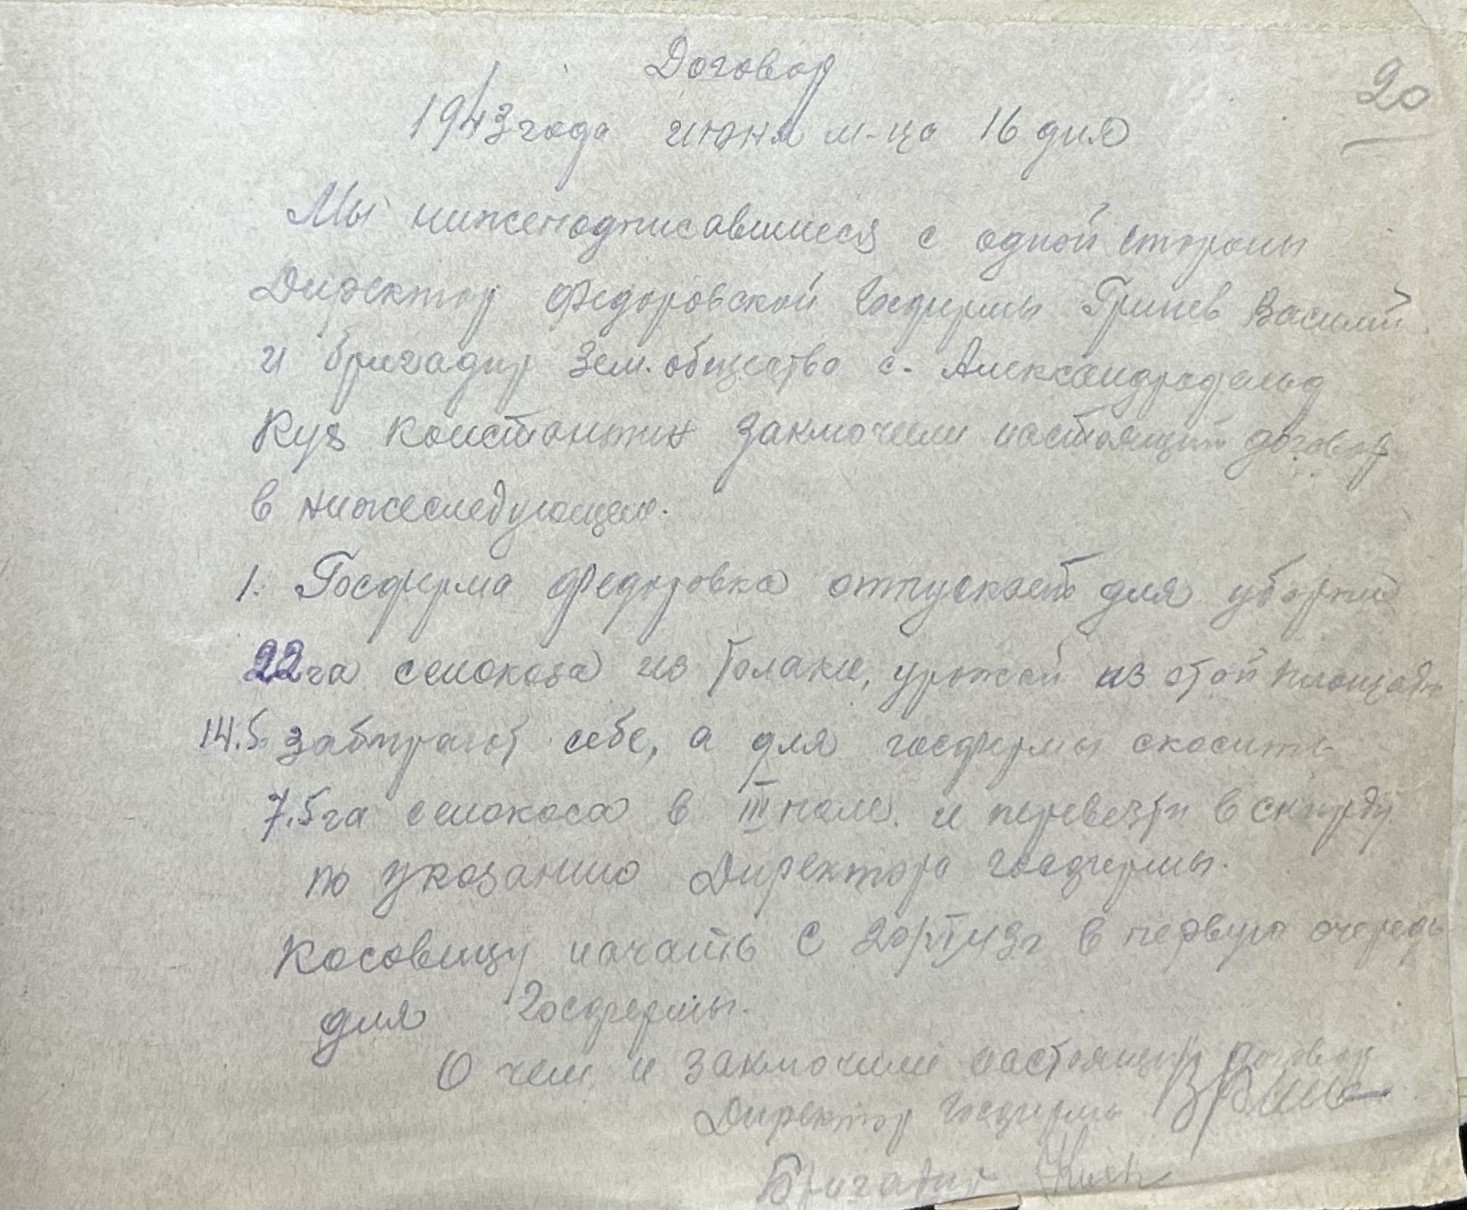 Договор
20
1943 года июня м-ца 16 дня
Мы нижеподписавшиеся с одной стороны
Директор Федоровской Госфермы Гринев Василий
и бригадир Зем. общество с. Александрофельд
Куз Константин заключили настоящий договор
в нижеследующем.
1. Госферма Федоровка отпускает для уборки
22 га сенокоса из толаки, урожай из этой площади
14.5 забирают себе, а для госфермы скосить
7.5 га сенокоса в III поле и перевезти в скирду
по указанию Директора госфермы.
Косовицу начать с 20/VI 43 г в первую очередь
для Госфермы.
О чем и заключили настоящий договор
Директор Госфермы
Бригадир